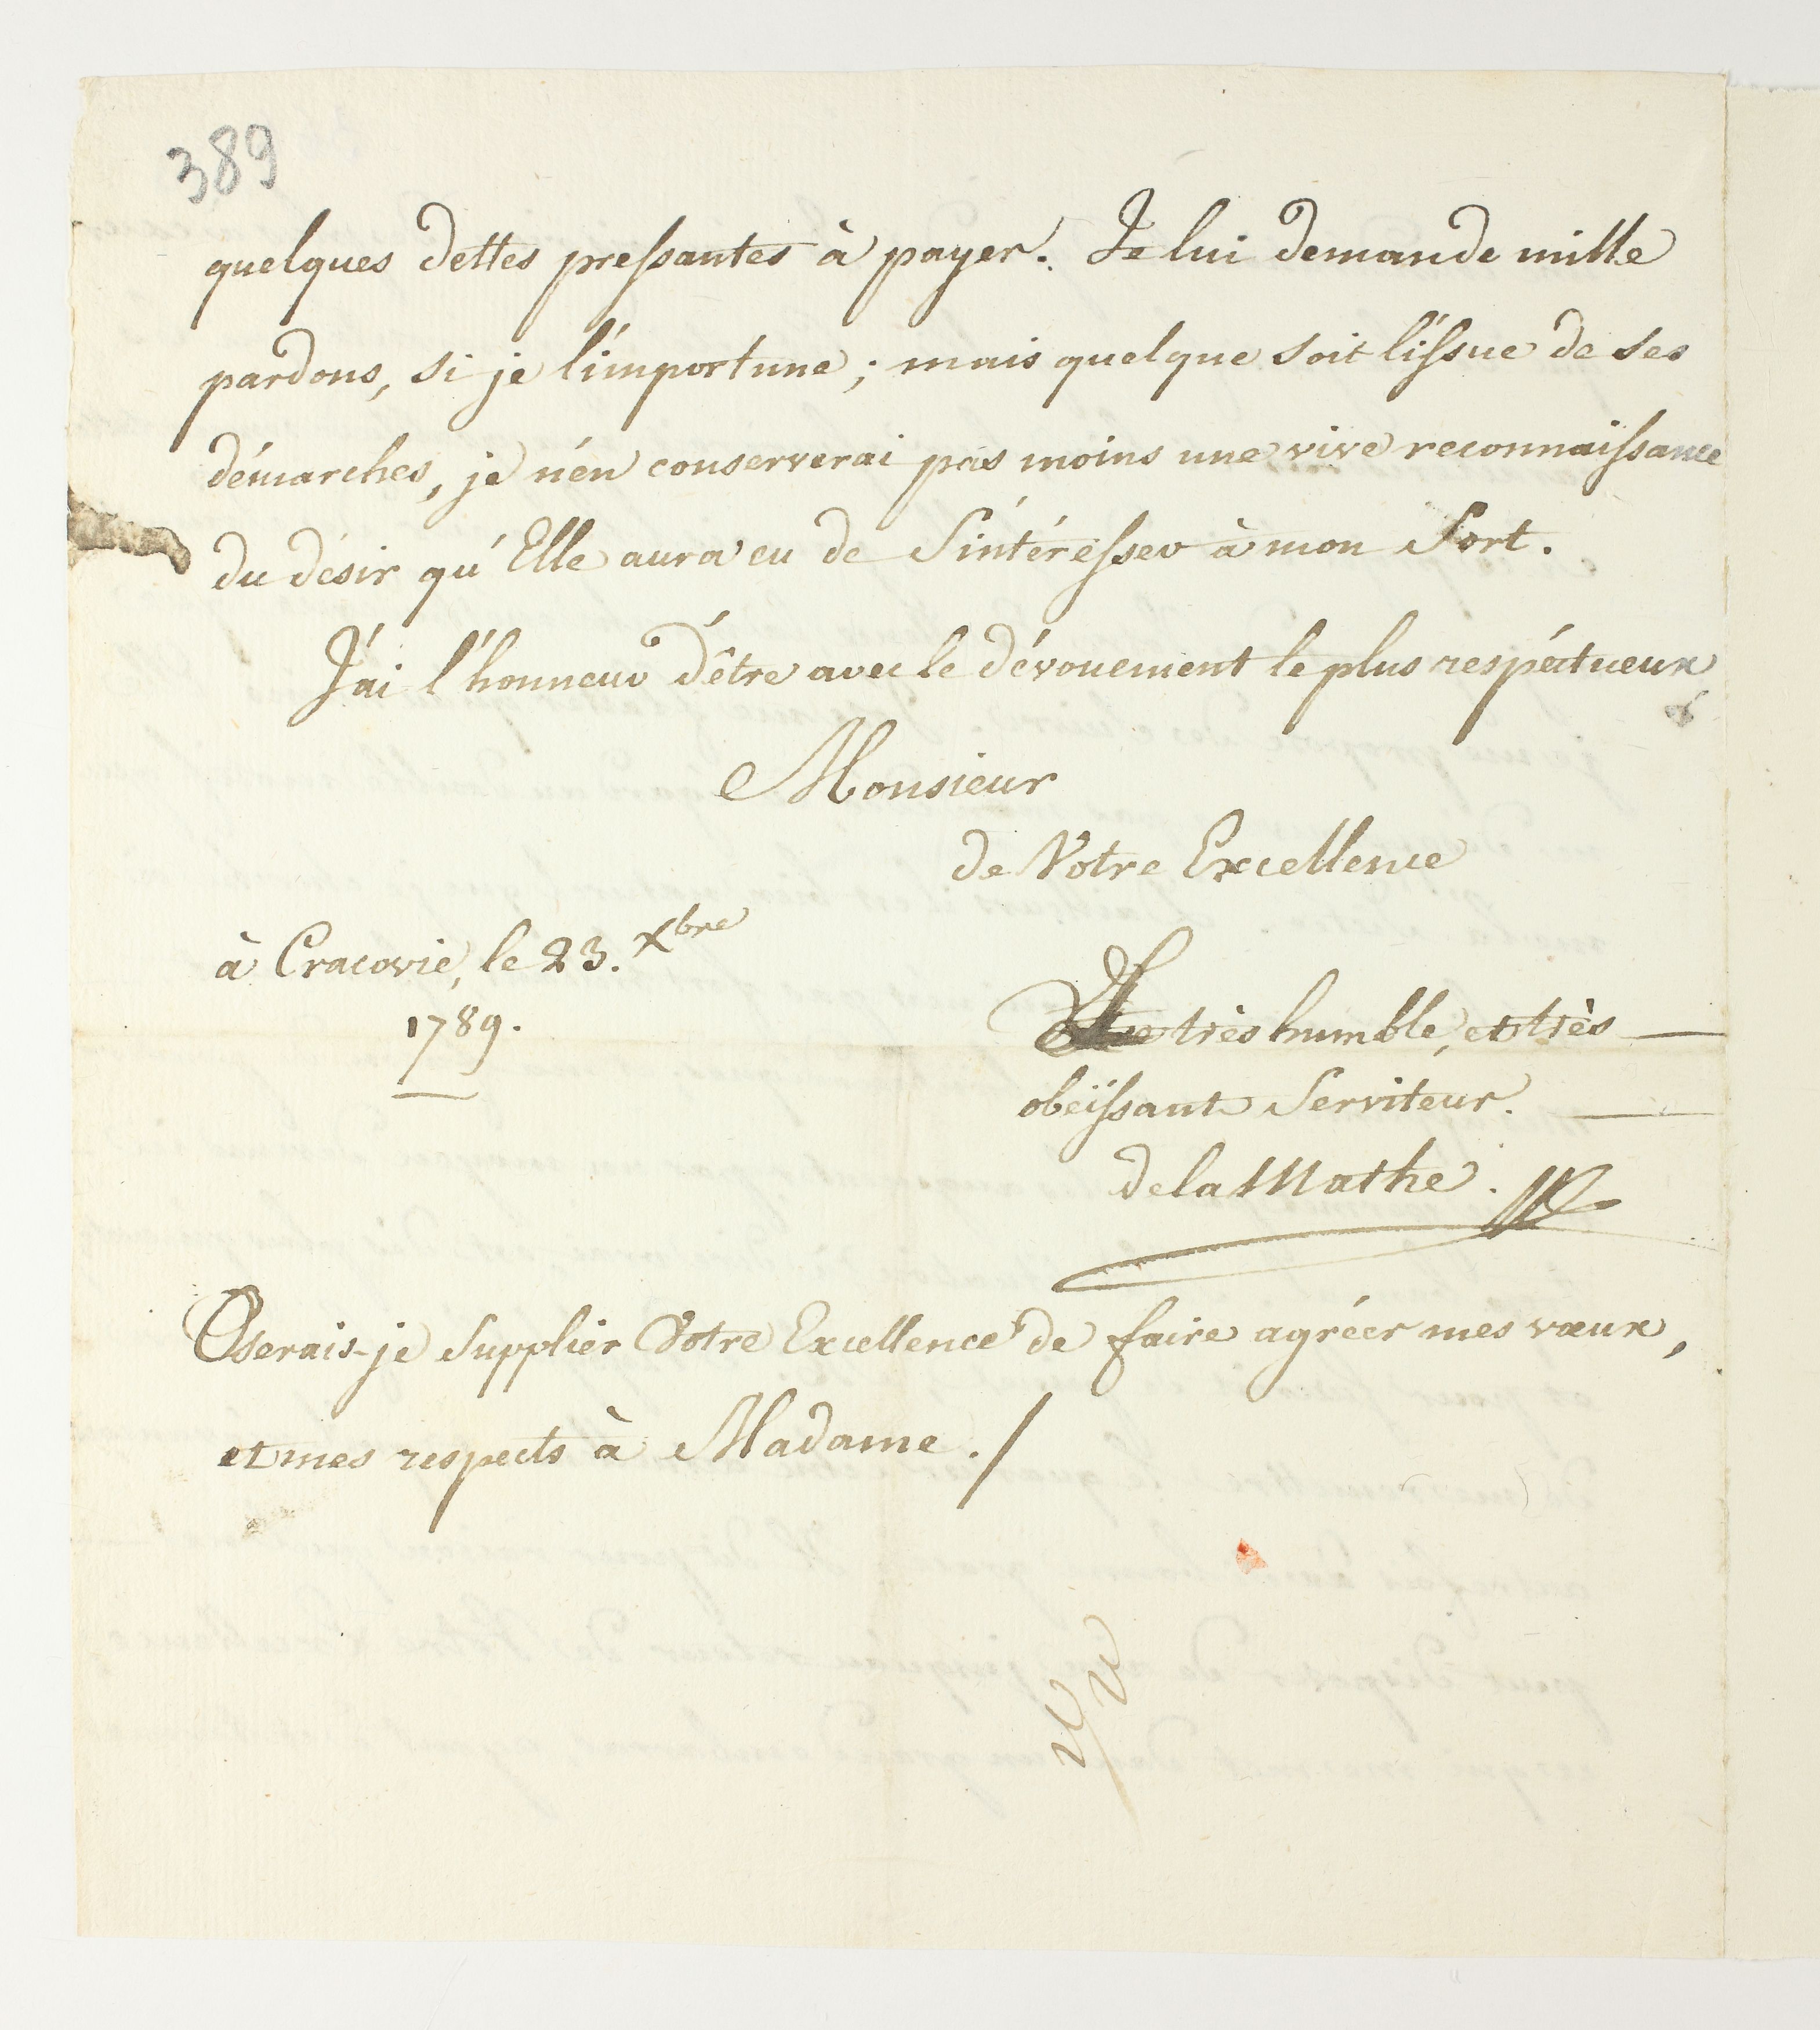 389
quelques dettes pressantes à payer. Je lui demande mille
pardons, si je l'importune; mais quelque soit l'issue de ses
démarches, je n'en conserverai pas moins une vive reconnaissance
du désir qu'Elle aura eu de S'intéresser à mon Sort.
J'ai l'honneur d'être avec le dévouement le plus respéctueux
Monsieur
de Votre Excellence
à Cracovie, le 23. Xbre
1789.
très humble, et très
obéïssant Serviteur.
de la Mathe.
Oserais-je Supplier Votre Excellence de faire agréer mes vœux,
et mes respects à Madame./